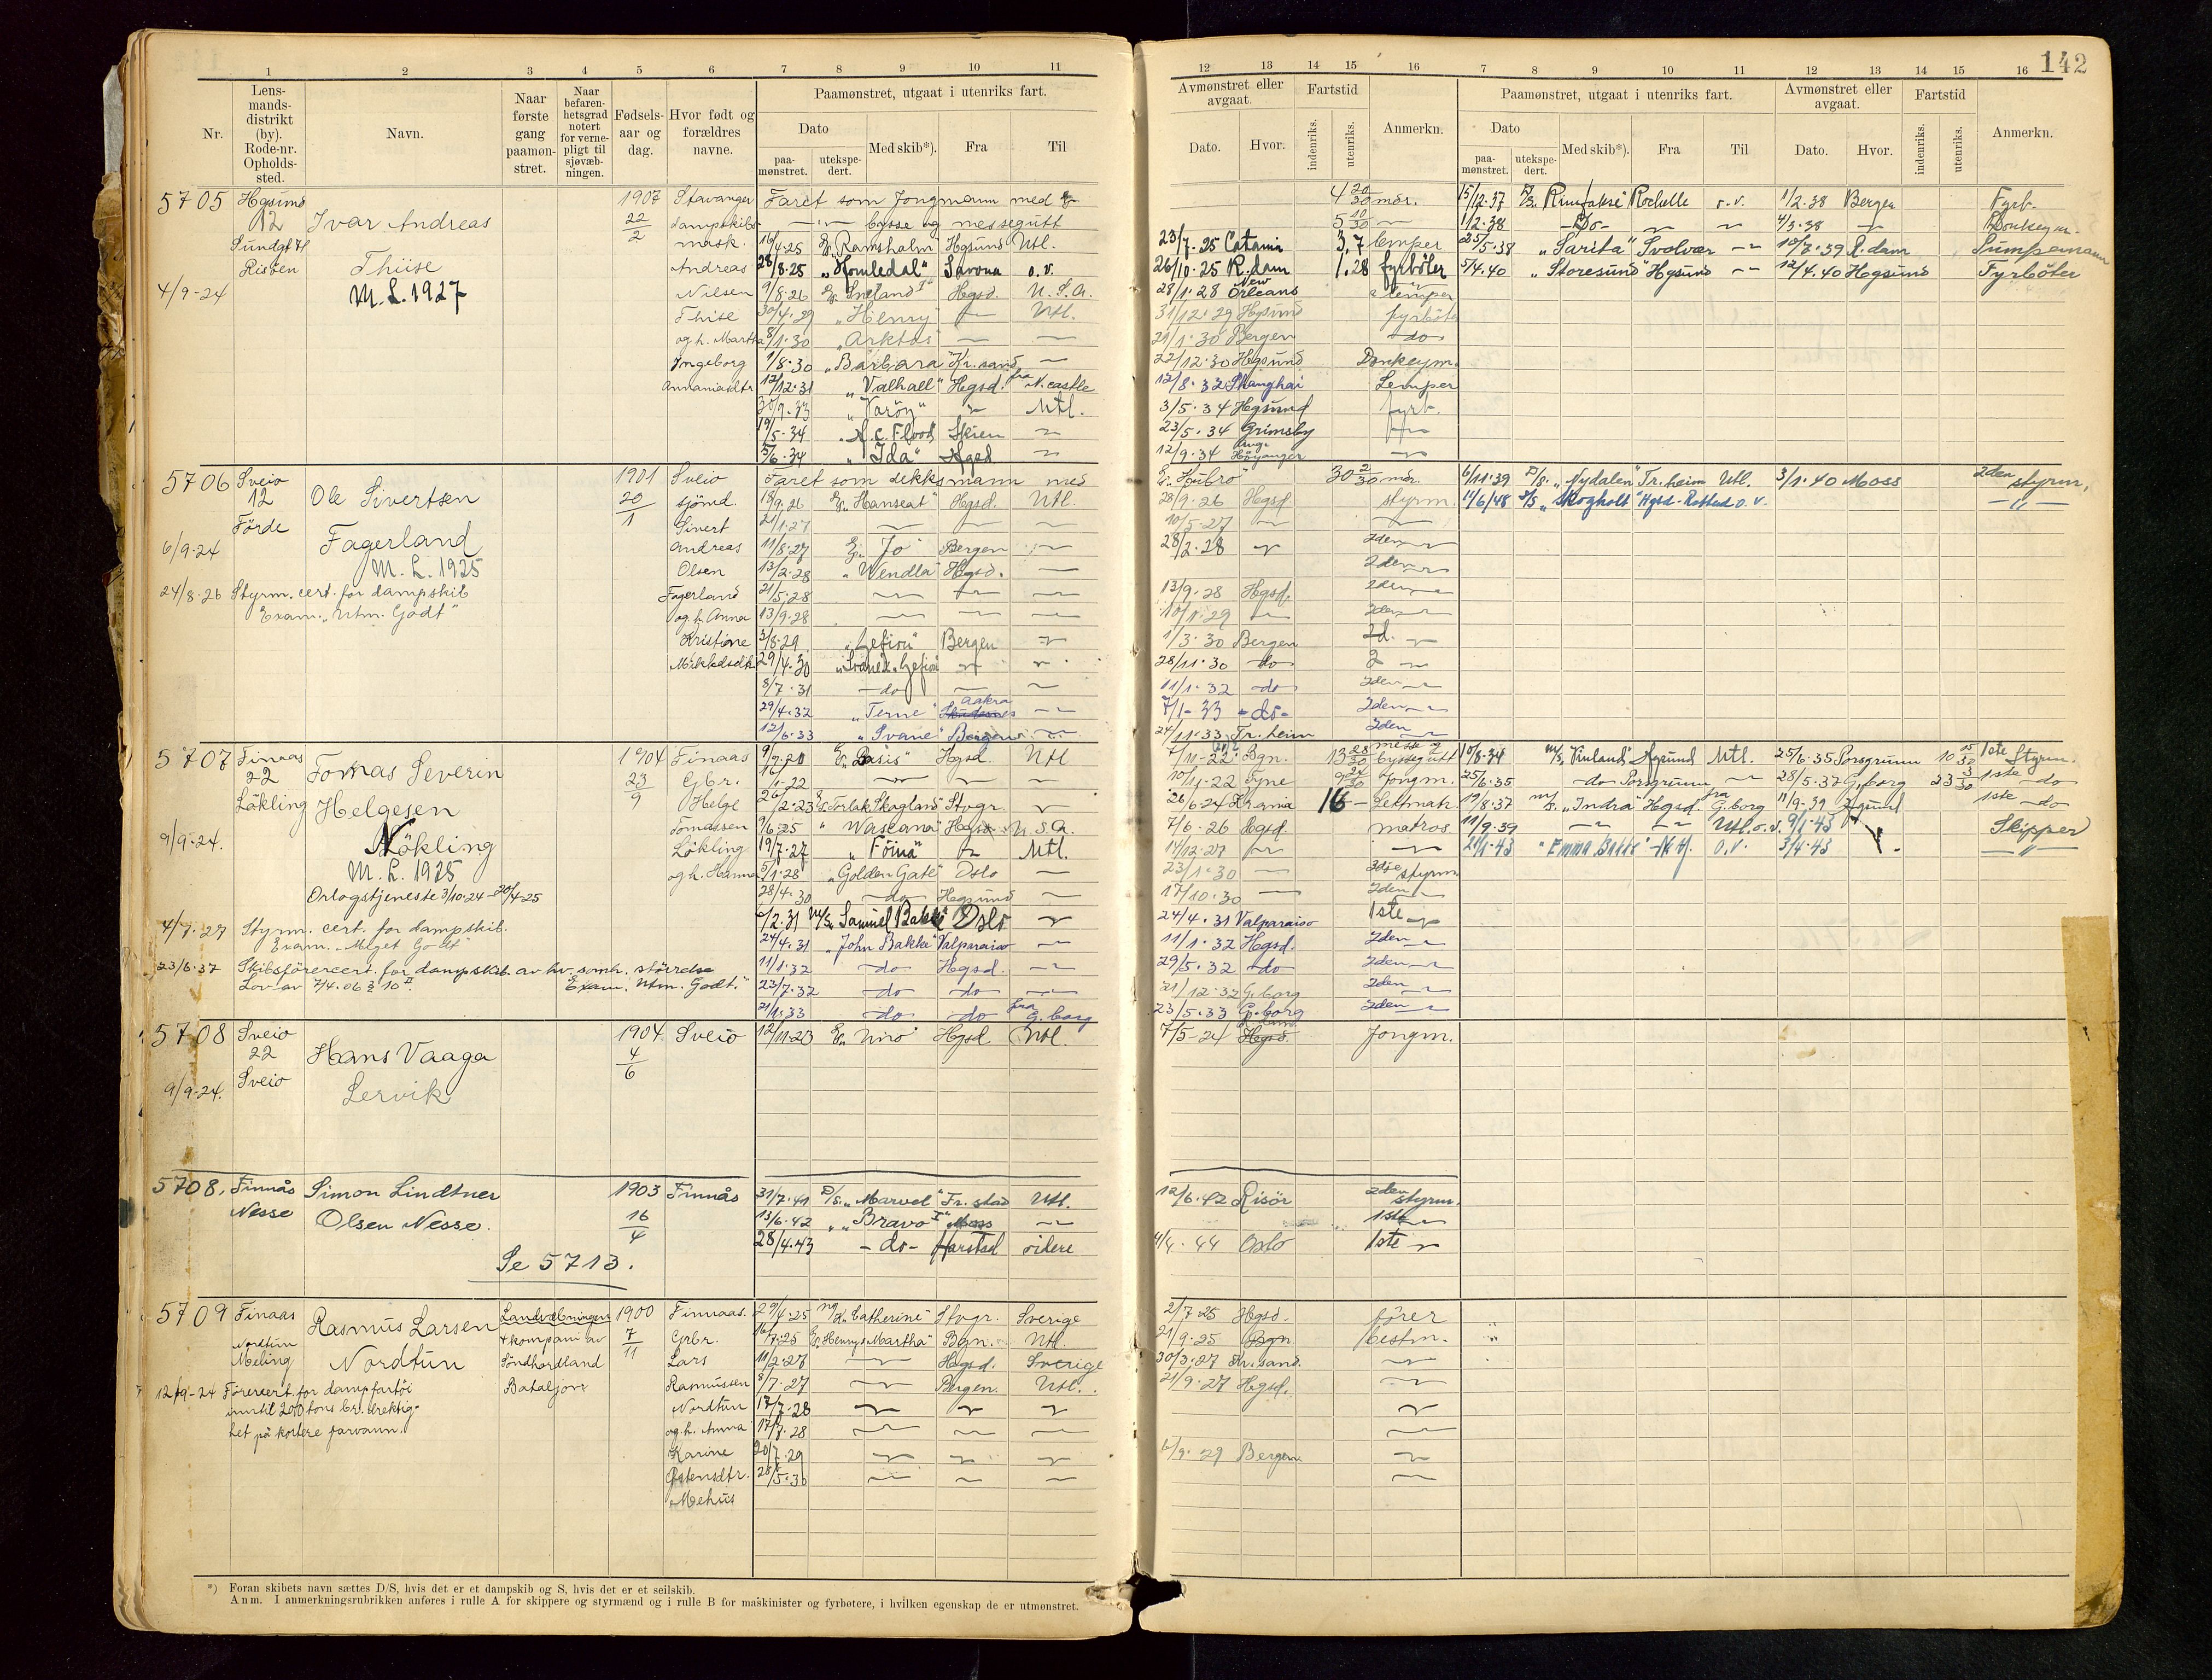 142
1 2 3 4 5 6 7 8 9 10 11
Nr.
Lensmandsdistrikt (by). Rode-nr. Opholdssted.
Navn.
Naar første gang paamønstret.
Naar befarenhetsgrad notert for vernepligt til sjøvæbningen.
Fødselsaar og dag.
Hvor født og forældres navne.
Paamønstret, utgaat i utenriks fart.
Dato
paamønstret.
utekspedert.
Med skib*).
Fra
Til
5705 Hgsund 12 Sundgt Risöen
4/9-24
Ivar Andreas
Thiise
M.L. 1927
1907 22/2
Stavanger
dampskibs
mask.
Andreas
Nilsen
Thise
og h. Martha
Ingeborg
Faret som Jongmann med
bysse og messegutt
16/4-25 Ramsholm Hgsund Utl.
28/8-25 "Homledal" Savona o.v.
9/8-26 Hgsd. U.S.A.
30/4-29 "Henry" Utl.
8/1-30 "Arktos"
1/8-30 "Barbara" Kr.sand
12/12-31 "Valhall" Hgsd. fra N.castle
30/9-33 "Varöy" Utl.
19/5-34 Skien
5/6-34 "Ida" Hgsd
5706 Sveio 12 Förde
6/9-24
Ole Sivertsen
Fagerland
M.L. 1925
24/8-26 Styrm. cert. for dampskib
Exam. "Utm. Godt"
1901 20/1
Sveio
sjömd.
Sivert
Andreas
Olsen
Fagerland
og h. Anna
Kristine
Faret som dekksmann med
18/9-26 "Hanseat" Hgsd. Utl.
21/1-27
11/8-27 "Jo" Bergen
13/2-28 "Wendla" Hgsd.
21/5-28
13/9-28
3/8-29 "Gefion" Bergen
29/4-30
8/7-31 do
29/4-32 "Terne" Aakra
12/6-33 "Svane" Bergen
5707 Finnaas 22 Lökling
9/9-24.
Tomas Severin
Helgesen
Nökling
M.L. 1925
Orlogstjeneste 3/10-24 - 20/4-25
4/7-27 Styrm. cert. for dampskib.
Exam. "Meget Godt"
23/6-37 Skibsförercert. for dampskib av hv. somh. störrelse
Lov av 7/4-06 § 10 II. Exam. "Utm. Godt."
1904 23/9
Finnaas
Gbr.
Helge
Tomassen
Lökling
og h. Hanna
9/9-20 "Basis" Hgsd. Utl
2/2-23 Torlak Skogland Stvgr.
9/6-25 "Wascana" U.S.A.
19/7-27 "Föina" Utl.
5/1-28 "Golden Gate" Oslo
28/4-30 do Hgsund
6/2-31 M/S. Samuel Bakke Oslo
24/4-31 "John Bakke" Valparaiso
11/1-32 do Hgsd.
23/7-32 do do
21/1-33 do do fra G.borg
5708 Sveio 22 Sveio
9/9-24.
Hans Vaaga
Lervik
1904 4/6
Sveio
12/11-23 Hgsd. Utl.
5708. Finnås Nesse
Simon Lindtner
Olsen Nesse.
Se 5713.
1903 16/4
Finnås
31/7-41 D/S. "Marvel" Fr.stad Utl.
13/6-42 "Bravo I" Moss
28/4-43 - do - Harstad videre
5709 Finaas Nordtun Meling
12/9-24 Förercert. for dampfartöi
inntil 200 tons br. drektig-
het på kortere farvann.
Rasmus Larsen
Nordtun
Landvebningen
4 kompani av
Söndhordland
Bataljon
1900 7/11
Finnaas.
Gbr.
Lars
Rasmussen
Nordtun
og h. Anna
Karine
Mehus
29/4-25 Catherine Stvgr. Sverige
16/7-25 "Henry" "Martha" Bgn. Utl.
11/2-27 Hgsd. Sverige
8/7-27 Bergen. Utl.
17/7-28
17/8-28
20/7-29
28/5-30
*) Foran skibets navn sættes D/S, hvis det er et dampskib og S, hvis det er et seilskib.
Anm. I anmerkningsrubrikken anføres i rulle A for skippere og styrmænd og i rulle B for maskinister og fyrbøtere, i hvilken egenskap de er utmønstret.
12 13 14 15 16 7 8 9 10 11 12 13 14 15 16
Avmønstret eller avgaat.
Dato. Hvor.
Fartstid
indenriks. utenriks.
Anmerkn.
Paamønstret, utgaat i utenriks fart.
Dato
paamønstret. utekspedert.
Med skib*). Fra Til
Avmønstret eller avgaat.
Dato. Hvor.
Fartstid
indenriks. utenriks.
Anmerkn.
4 20/30 mdr. 15/12-37 Rochelle o.v. 1/2-38 Bergen Fyrb.
5 10/30 1/2-38 -Do- 4/3-38 Donkeym.
23/7-25 Catania 3,7 lemper 25/5-38 "Sarita" Svolvær 10/7-39 R.dam
26/10-25 R.dam 1.28 fyrböter 5/4-40 "Storesund" Hgsund 12/4-40 Hgsund Fyrböter
28/1-28 New Orleans lemper
31/12-29 Hgsund fyrböter
21/1-30 Bergen do
22/12-30 Hgsund Donkeym.
12/8-32 Shanghai Lemper
3/5-34 Hgsund fyrb.
23/5-34 Grimsby
12/9-34 Höyanger
30 2/30 mdr. 6/11-39 D/S. "Nydalen" Tr.heim Utl. 3/1-40 Moss 2den styrm.
28/9-26 Hgsd. styrm. 14/6/48 "Skogholt" o.v.
10/5-27
28/2-28 2den
2den
13/9-28 Hgsd. 2den
10/1-29 2den
1/3-30 Bergen 2d.
28/11-30 do 2
11/1-32 do 2den
7/1-33 -do- 2den
24/11-33 Tr.heim 2den
7/11-22 Bgn. 13 28/30 byssegutt 10/8-34 "Vinland" Utl. 25/6-35 Porsgrunn 10 15/30 1ste Styrm.
10/11-22 Tyne 9 24/30 Jongm. 25/6-35 do Porsgrunn 28/5-37 G.borg 23 3/30 1ste do
26/6-24 16 19/8-37 "Indra" Hgsd. fra G.borg 11/9-39 1ste do
7/6-26 Hgsd. matros 11/9-39 Utl. o.v. 9/1-43 Skipper
14/12-27 21/1-43 "Emma Bakke" o.v. 3/4-43
23/1-30 styrm.
17/10-30 2den
24/4-31 Valparaiso 1ste
11/1-32 Hgsd. 2den
29/5-32 do 2den
21/12-32 G.borg 2den
23/5-33 G.borg 2den
7/5-24 Hgsd. Jongm.
12/6-42 Risör 2den styrm.
1ste
4/4-44 Oslo 1ste
2/7-25 Hgsd. förer
21/9-25 Bgn bestm.
30/3-27 Kr.sand.
21/9-27 Hgsd.
6/9-29 Bergen